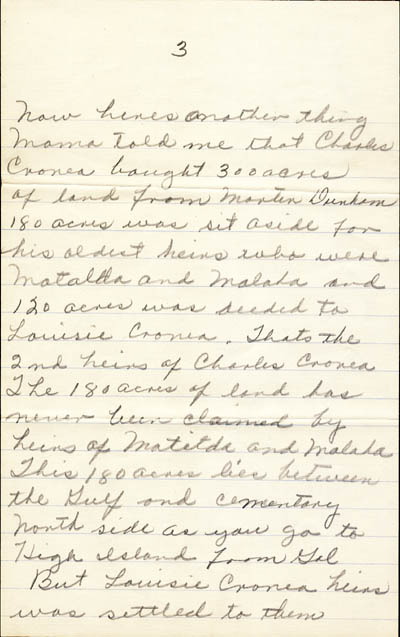 3
Now heres another thing
Mama told me that Charles
Cronea baught 300 acres
of land from Morten Dunham
180 acres was sit aside for
his oldest heirs who were
Matallda and Malada and
120 acres was deeded to
Louisie Cronea. Thats the
2nd heirs of Charles Cronea
The 180 acres of land has
never been claimed by
heirs of Matilda and Malada
This 180 acres lies between
the Gulf and cementary
North side as you go to
High Island from Gal
But Louisie Cronea heirs
was settled to them